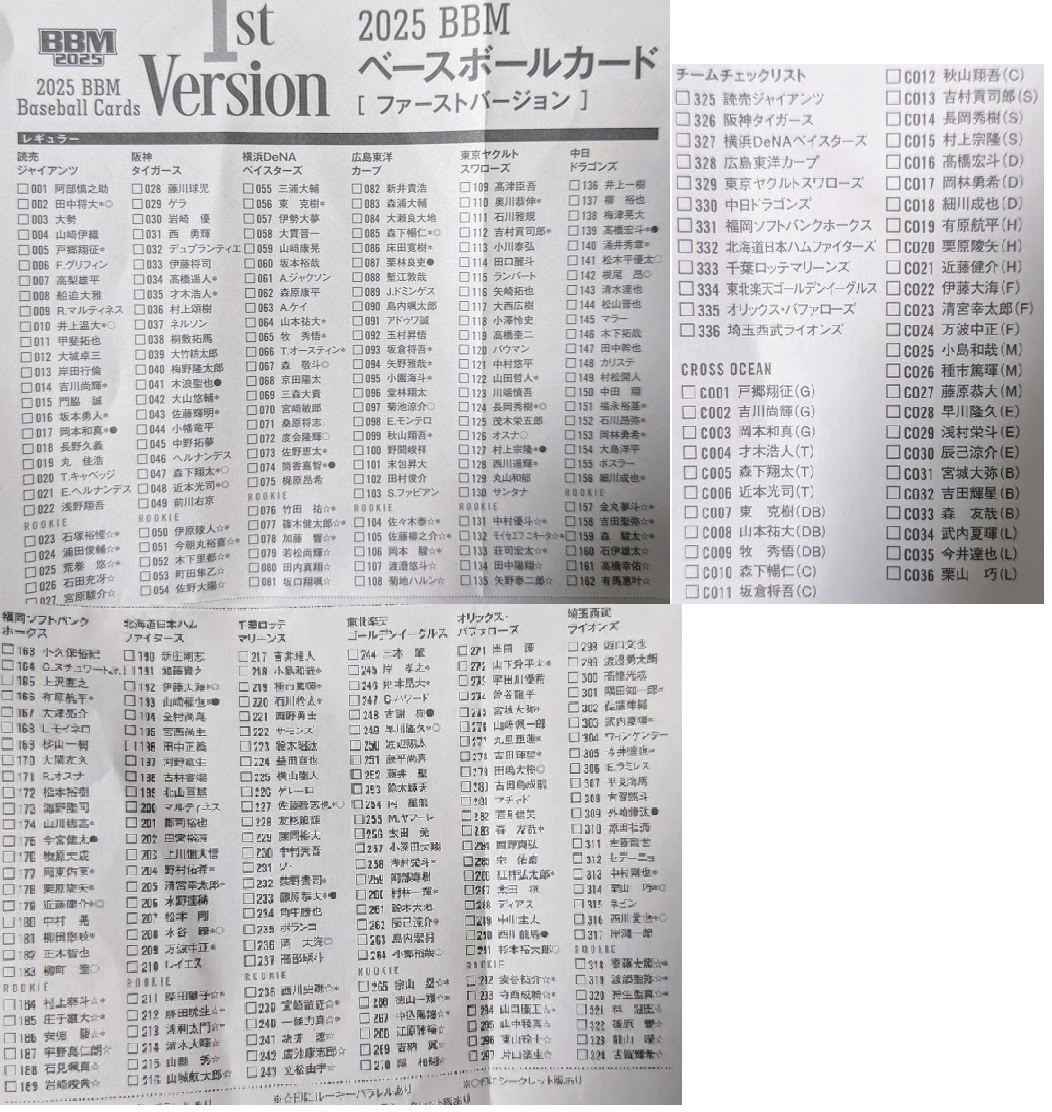 BBM
2025
2025 BBM
Baseball Cards
1st
Version
2025 BBM
ベースボールカード
[ ファーストバージョン ]
レギュラー
読売
ジャイアンツ
001 阿部慎之助
002 田中将大*○
003 大勢
004 山﨑伊織
005 戸郷翔征*
006 F.グリフィン
007 高梨雄平
008 船迫大雅
009 R.マルティネス
010 井上温大*○
011 甲斐拓也
012 大城卓三
013 岸田行倫
014 吉川尚輝*
015 門脇 誠
016 坂本勇人*
017 岡本和真*●
018 長野久義
019 丸 佳浩
020 T.キャベッジ
021 E.ヘルナンデス
022 浅野翔吾
ROOKIE
023 石塚裕惺☆*
024 浦田俊輔☆*
025 荒巻 悠☆*
026 石田充冴☆
027 宮原駿介☆
阪神
タイガース
028 藤川球児
029 ゲラ
030 岩崎 優
031 西 勇輝
032 デュプランティエ
033 伊藤将司
034 髙橋遥人*
035 才木浩人*
036 村上頌樹
037 ネルソン
038 桐敷拓馬
039 大竹耕太郎
040 梅野隆太郎
041 木浪聖也●
042 大山悠輔*
043 佐藤輝明*
044 小幡竜平
045 中野拓夢
046 ヘルナンデス
047 森下翔太*○
048 近本光司*◎
049 前川右京
ROOKIE
050 伊原陵人☆*
051 今朝丸裕喜☆*
052 木下里都☆*
053 町田隼乙☆
054 佐野大陽☆
横浜DeNA
ベイスターズ
055 三浦大輔
056 東 克樹*
057 伊勢大夢
058 大貫晋一
059 山﨑康晃
060 坂本裕哉
061 A.ジャクソン
062 森原康平
063 A.ケイ
064 山本祐大*
065 牧 秀悟*
066 T.オースティン*
067 森 敬斗○
068 京田陽太
069 三森大貴
070 宮﨑敏郎
071 桑原将志
072 度会隆輝○
073 佐野恵太*
074 筒香嘉智*●
075 梶原昂希
ROOKIE
076 竹田 祐☆*
077 篠木健太郎☆*
078 加藤 響☆*
079 若松尚輝☆
080 田内真翔☆
081 坂口翔颯☆
広島東洋
カープ
082 新井貴浩
083 森浦大輔
084 大瀬良大地
085 森下暢仁*○
086 床田寛樹*
087 栗林良吏●
088 塹江敦哉
089 J.ドミンゲス
090 島内颯太郎
091 アドゥワ誠
092 玉村昇悟
093 坂倉将吾*
094 矢野雅哉*
095 小園海斗*
096 堂林翔太
097 菊池涼介○
098 E.モンテロ
099 秋山翔吾*
100 野間峻祥
101 末包昇大
102 田村俊介
103 S.ファビアン
ROOKIE
104 佐々木泰☆*
105 佐藤柳之介☆*
106 岡本 駿☆*
107 渡邉悠斗☆
108 菊地ハルン☆
東京ヤクルト
スワローズ
109 髙津臣吾
110 奥川恭伸*
111 石川雅規
112 吉村貢司郎*
113 小川泰弘
114 田口麗斗
115 ランバート
116 矢崎拓也
117 大西広樹
118 小澤怜史
119 高橋奎二
120 バウマン
121 中村悠平
122 山田哲人*
123 川端慎吾
124 長岡秀樹*◎
125 茂木栄五郎
126 オスナ○
127 村上宗隆*●
128 西川遥輝*
129 丸山和郁
130 サンタナ
ROOKIE
131 中村優斗☆*
132 モイセエフニキータ☆*
133 荘司宏太☆*
134 田中陽翔☆
135 矢野泰二郎☆
中日
ドラゴンズ
136 井上一樹
137 柳 裕也
138 梅津晃大
139 髙橋宏斗*●
140 涌井秀章*
141 松木平優太○
142 根尾 昂○
143 清水達也
144 松山晋也
145 マラー
146 木下拓哉
147 田中幹也
148 カリステ
149 村松開人
150 中田 翔
151 福永裕基*
152 石川昂弥*
153 岡林勇希*
154 大島洋平
155 ボスラー
156 細川成也*
ROOKIE
157 金丸夢斗☆*
158 吉田聖弥☆*
159 森 駿太☆*
160 石伊雄太☆
161 高橋幸佑☆
162 有馬惠叶☆
チームチェックリスト
325 読売ジャイアンツ
326 阪神タイガース
327 横浜DeNAベイスターズ
328 広島東洋カープ
329 東京ヤクルトスワローズ
330 中日ドラゴンズ
331 福岡ソフトバンクホークス
332 北海道日本ハムファイターズ
333 千葉ロッテマリーンズ
334 東北楽天ゴールデンイーグルス
335 オリックス・バファローズ
336 埼玉西武ライオンズ
CROSS OCEAN
CO01 戸郷翔征(G)
CO02 吉川尚輝(G)
CO03 岡本和真(G)
CO04 才木浩人(T)
CO05 森下翔太(T)
CO06 近本光司(T)
CO07 東 克樹(DB)
CO08 山本祐大(DB)
CO09 牧 秀悟(DB)
CO10 森下暢仁(C)
CO11 坂倉将吾(C)
CO12 秋山翔吾(C)
CO13 吉村貢司郎(S)
CO14 長岡秀樹(S)
CO15 村上宗隆(S)
CO16 髙橋宏斗(D)
CO17 岡林勇希(D)
CO18 細川成也(D)
CO19 有原航平(H)
CO20 栗原陵矢(H)
CO21 近藤健介(H)
CO22 伊藤大海(F)
CO23 清宮幸太郎(F)
CO24 万波中正(F)
CO25 小島和哉(M)
CO26 種市篤暉(M)
CO27 藤原恭大(M)
CO28 早川隆久(E)
CO29 浅村栄斗(E)
CO30 辰己涼介(E)
CO31 宮城大弥(B)
CO32 吉田輝星(B)
CO33 森 友哉(B)
CO34 武内夏暉(L)
CO35 今井達也(L)
CO36 栗山 巧(L)
福岡ソフトバンク
ホークス
163 小久保裕紀
164 C.スチュワートJr.
165 上沢直之
166 有原航平*
167 大津亮介
168 L.モイネロ
169 杉山一樹
170 大関友久
171 R.オスナ
172 松本裕樹
173 海野隆司
174 山川穂高*
175 今宮健太●
176 牧原大成
177 周東佑京*
178 栗原陵矢*
179 近藤健介*◎
180 中村 晃
181 柳田悠岐*
182 正木智也
183 柳町 達○
ROOKIE
184 村上泰斗☆*
185 庄子雄大☆*
186 安徳 駿☆*
187 宇野真仁朗☆
188 石見颯真☆
189 岩崎峻典☆
北海道日本ハム
ファイターズ
190 新庄剛志
191 加藤貴之
192 伊藤大海*◎
193 山﨑福也*●
194 金村尚真
195 宮西尚生
196 田中正義
197 河野竜生
198 古林睿煬
199 北山亘基
200 マルティネス
201 郡司裕也
202 田宮裕涼
203 上川畑大悟
204 野村佑希*
205 清宮幸太郎*
206 水野達稀
207 松本 剛
208 水谷 瞬*○
209 万波中正*
210 レイエス
ROOKIE
211 柴田獅子☆*
212 藤田琉生☆*
213 浅利太門☆*
214 清水大暉☆
215 山縣 秀☆
216 山城航太郎☆
千葉ロッテ
マリーンズ
217 吉井理人
218 小島和哉*
219 種市篤暉*
220 石川柊太*
221 西野勇士
222 サモンズ
223 鈴木昭汰
224 益田直也
225 横山陸人
226 ゲレーロ
227 佐藤都志也*○
228 友杉篤輝
229 藤岡裕大
230 中村奨吾
231 ソト
232 荻野貴司*
233 藤原恭大*●
234 角中勝也
235 ポランコ
236 岡 大海○
237 髙部瑛斗
ROOKIE
238 西川史礁☆*
239 宮﨑竜成☆*
240 一條力真☆*
241 坂井 遼☆
242 廣池康志郎☆
243 立松由宇☆
東北楽天
ゴールデンイーグルス
244 三木 肇
245 岸 孝之*
246 則本昂大*
247 S.ハワード
248 古謝 樹●
249 早川隆久*○
250 渡辺翔太
251 藤平尚真
252 藤井 聖
253 鈴木翔天
254 内 星龍
255 M.ヤフーレ
256 太田 光
257 小深田大翔
258 浅村栄斗*
259 阿部寿樹
260 村林一輝*
261 鈴木大地
262 辰己涼介*
263 島内宏明
264 小郷裕哉○
ROOKIE
265 宗山 塁☆*
266 徳山一翔☆*
267 中込陽翔☆*
268 江原雅裕☆
269 吉納 翼☆
270 陽 柏翔☆
オリックス・
バファローズ
271 岸田 護
272 山下舜平大*
273 宇田川優希
274 曽谷龍平
275 宮城大弥*
276 山﨑颯一郎
277 九里亜蓮*
278 吉田輝星*
279 田嶋大樹○
280 古田島成龍
281 マチャド
282 若月健矢
283 森 友哉*
284 西野真弘
285 宗 佑磨
286 紅林弘太郎*
287 太田 椋
288 ディアス
289 中川圭太
290 西川龍馬●
291 杉本裕太郎○
ROOKIE
292 麦谷祐介☆*
293 寺西成騎☆*
294 山口廉王☆*
295 山中稜真☆
296 東山玲士☆
297 片山楽生☆
埼玉西武
ライオンズ
298 西口文也
299 渡邉勇太朗
300 髙橋光成
301 隅田知一郎*
302 佐藤隼輔
303 武内夏暉*
304 ウィンゲンター
305 今井達也*
306 E.ラミレス
307 平良海馬
308 古賀悠斗
309 外崎修汰●
310 源田壮亮
311 佐藤龍世
312 セデーニョ
313 中村剛也*
314 栗山 巧*◎
315 ネビン
316 西川愛也*○
317 岸潤一郎
ROOKIE
318 齋藤大翔☆*
319 渡部聖弥☆*
320 狩生聖真☆*
322 篠原 響☆
323 龍山 暖☆
324 古賀輝希☆
※☆印にルーキーパラレルあり
※○印にシークレット版あり